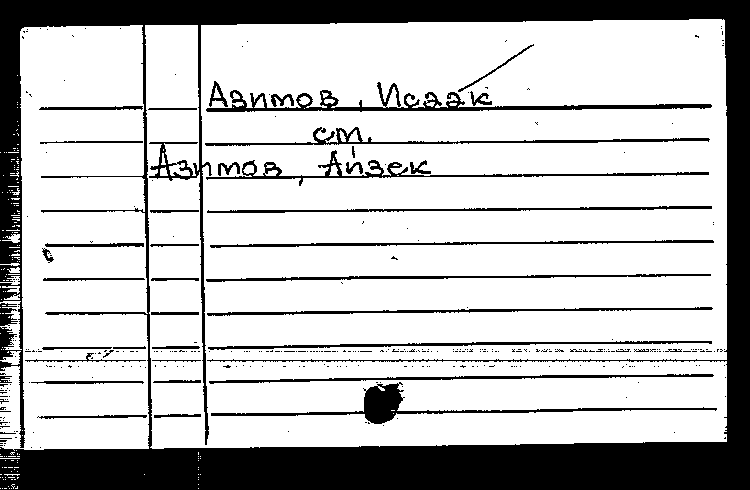 Азимов, Исаак
см.
Азимов, Айзек